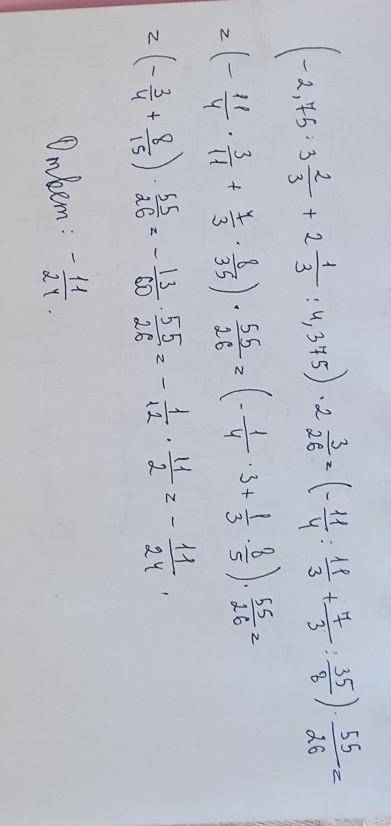 (-2,75 : 3 2/3 + 2 1/3 : 4,375) · 2 3/26 = (-11/4 : 11/3 + 7/3 : 35/8) · 55/26 =
= (-11/4 · 3/11 + 7/3 · 8/35) · 55/26 = (-1/4 · 3 + 1/3 · 8/5) · 55/26 =
= (-3/4 + 8/15) · 55/26 = -13/60 · 55/26 = -1/12 · 11/2 = -11/24.
Ответ: -11/24.